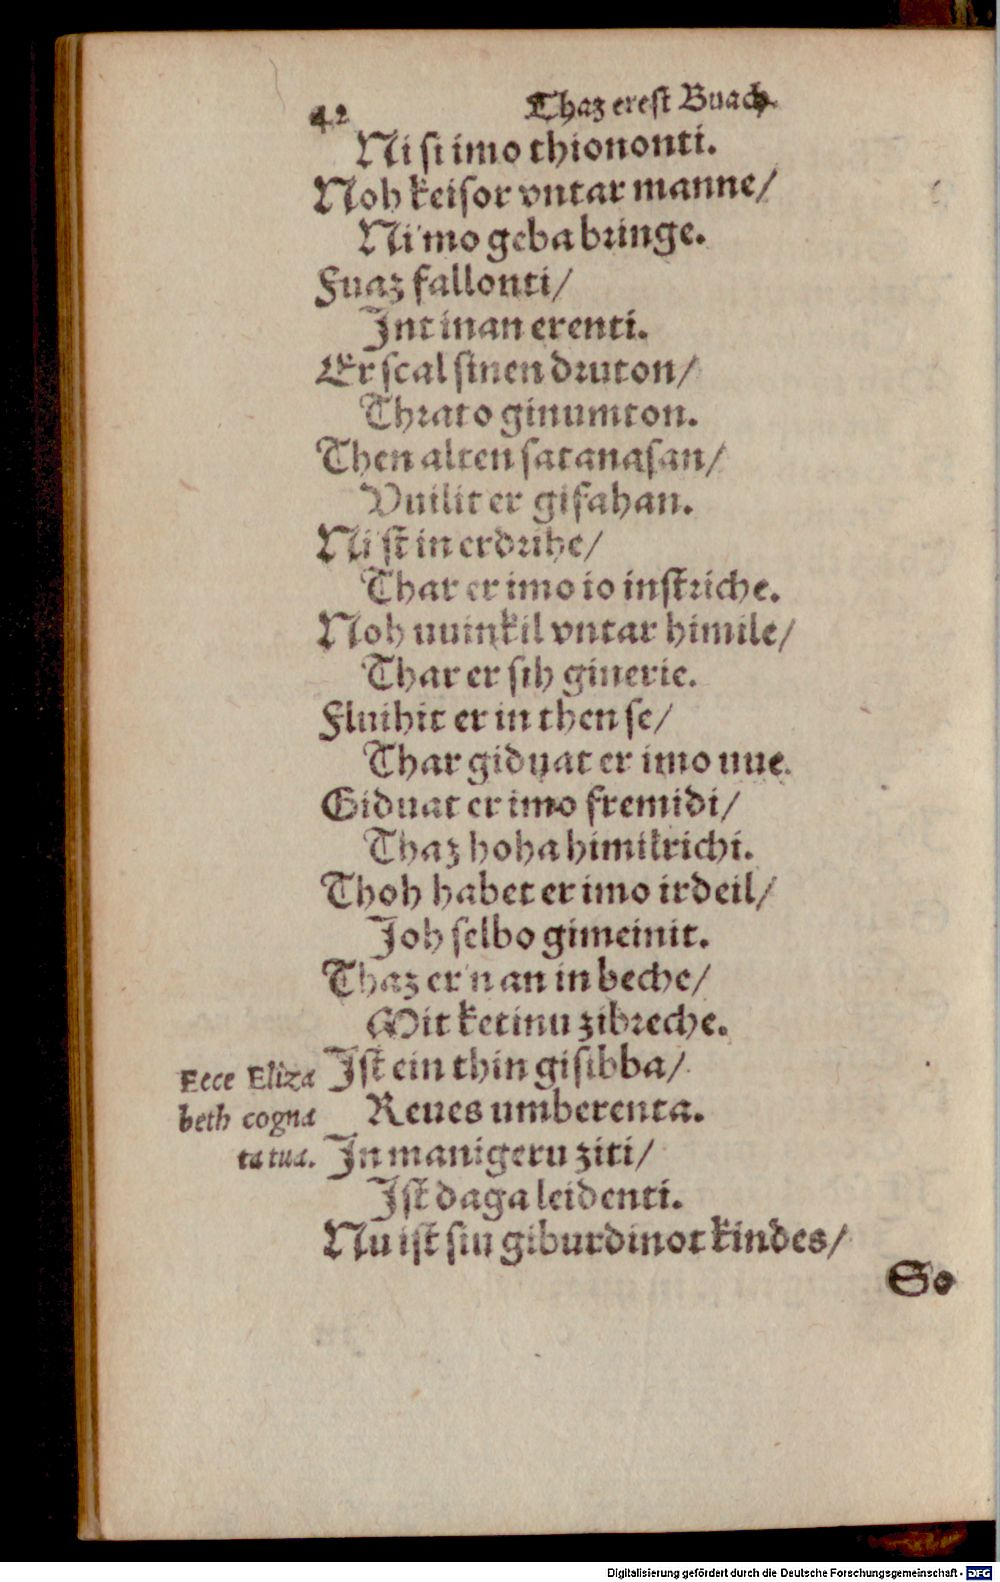 42 Thaz erest Buach.
Ni si imo thiononti.
Noh keisor vntar manne/
Ni'mo geba bringe.
Fuaz fallonti/
Int inan erenti.
Er scal sinen druton/
Thrato ginumton.
Then alten satanasan/
Vuilit er gifahan.
Ni'st in erdrihe/
Thar er imo io instriche.
Noh uuinkil vntar himile/
Thar er sih ginerie.
Fluihit er in then se/
Thar giduat er imo uue.
Giduat er imo fremidi/
Thaz hoha himilrichi.
Thoh habet er imo irdeil/
Joh selbo gimeinit.
Thaz er'n an in beche/
Mit ketinu zibreche.
Ist ein thin gisibba/
Reues umberenta.
In manigeru ziti/
Ist daga leidenti.
Nu ist siu giburdinot kindes/
Ecce Eliza
beth cogna
ta tua.
So
Digitalisierung gefördert durch die Deutsche Forschungsgemeinschaft - DFG